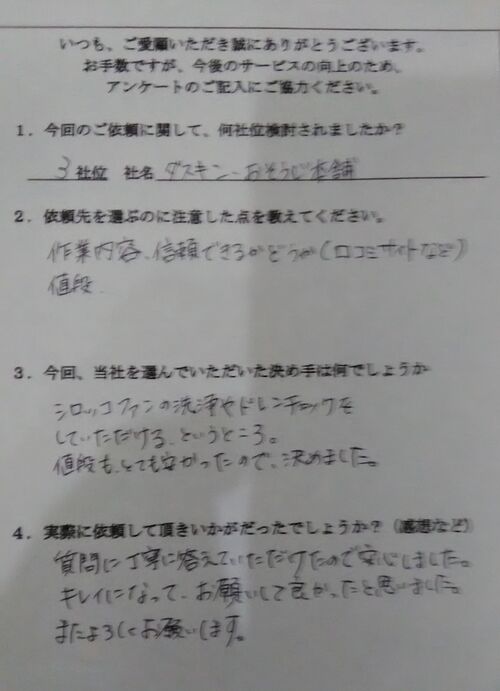 いつも、ご愛顧いただき誠にありがとうございます。
お手数ですが、今後のサービスの向上のため、
アンケートのご記入にご協力ください。
1．今回のご依頼に関して、何社位検討されましたか？
3 社位 社名 ダスキン、おそうじ本舗
2．依頼先を選ぶのに注意した点を教えてください。
作業内容、信頼できるかどうか(口コミサイトなど)
値段、
3．今回、当社を選んでいただいた決め手は何でしょうか
シロッコファンの洗浄やドレンチェックを
していただける、というところ。
値段も、とても安かったので、決めました。
4．実際に依頼して頂きいかがだったでしょうか？（感想など）
質問に丁寧に答えていただけたので安心しました。
キレイになって、お願いして良かったと思いました。
またよろしくお願いします。